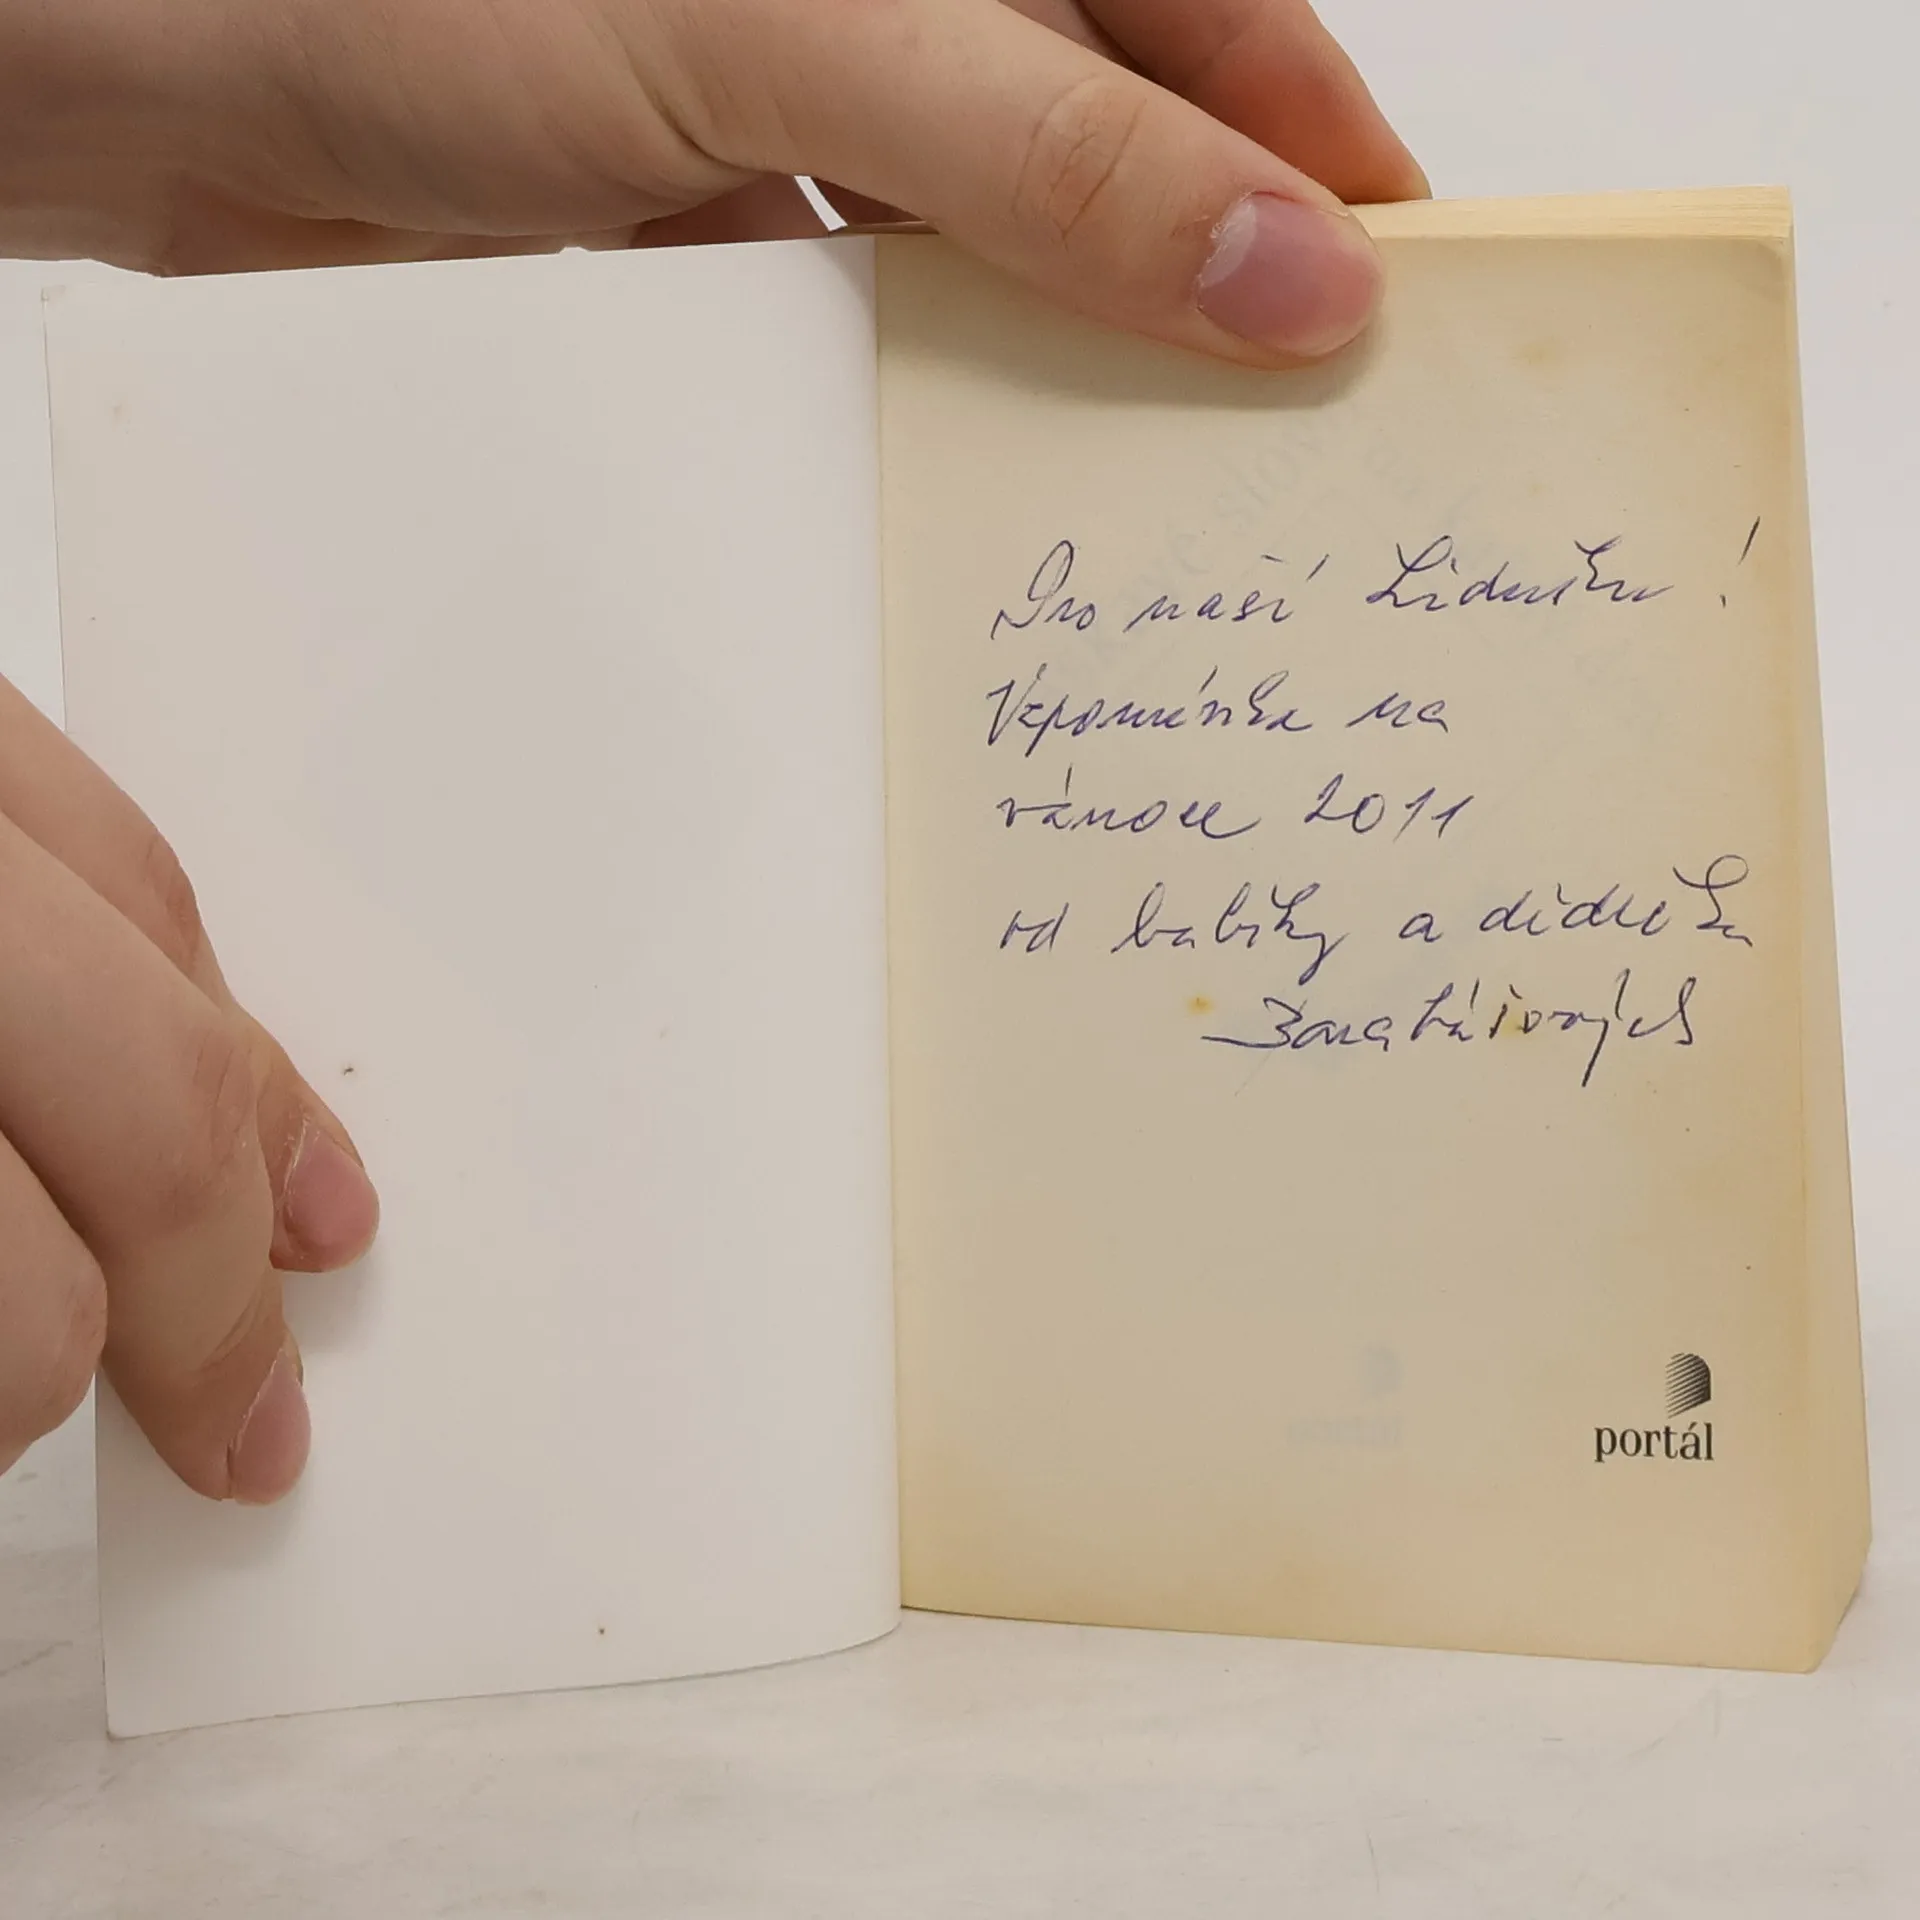 Pro naší Lidušku!
Vzpomínka na
vánoce 2011
od babičky a dědečka
portál